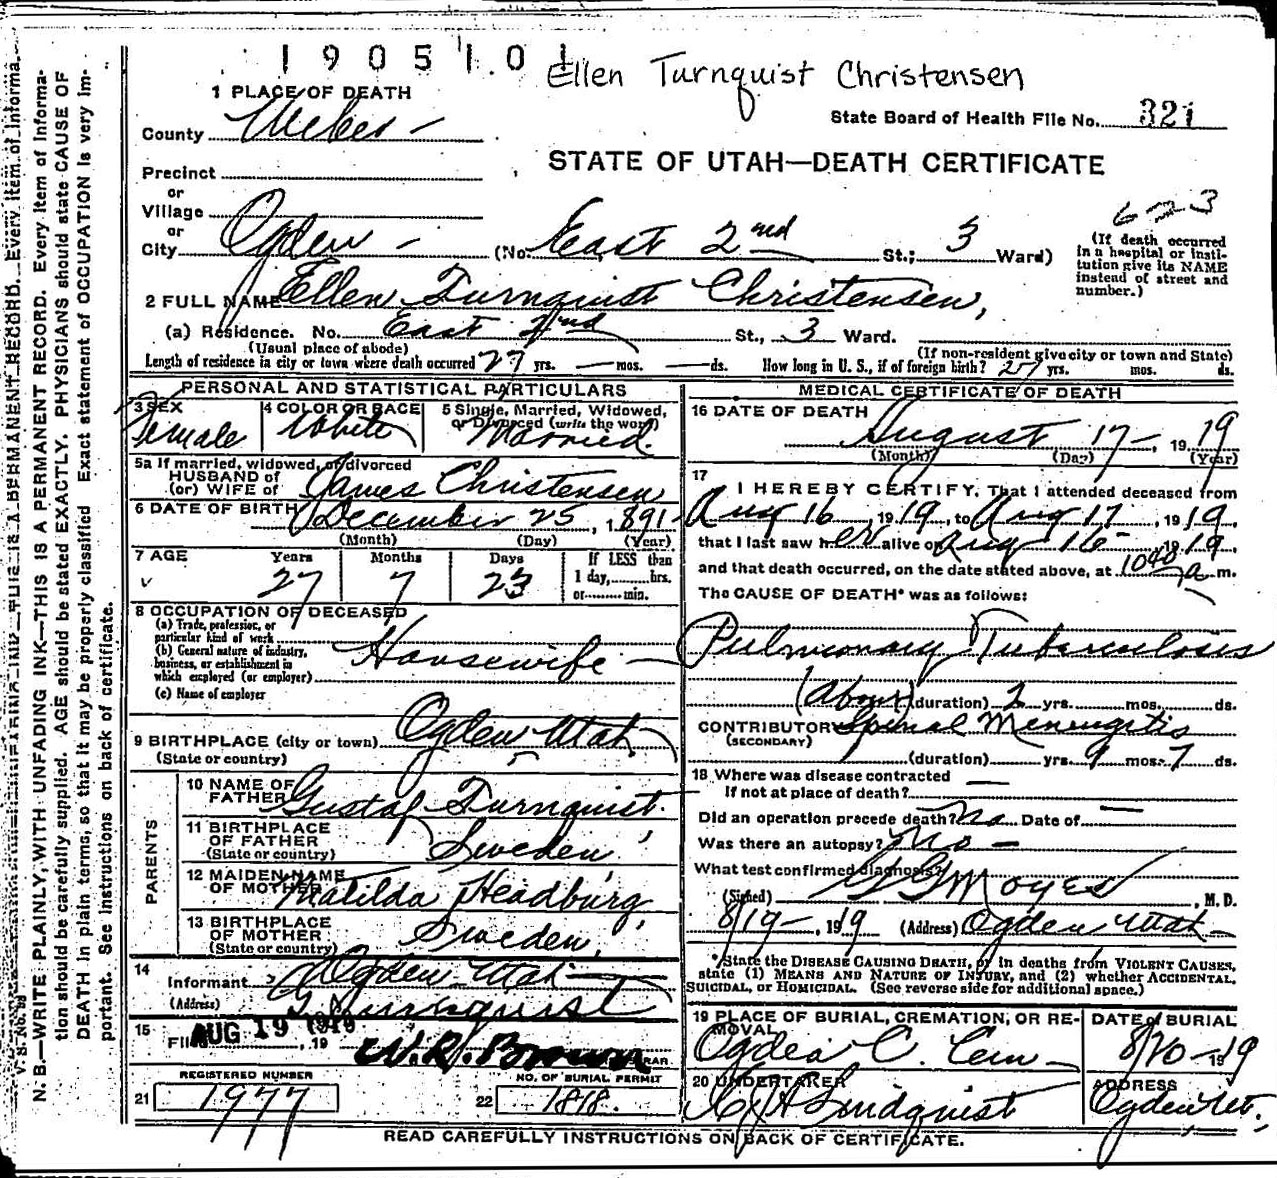 1905101
Ellen Turnquist Christensen
1 PLACE OF DEATH
State Board of Health File No. 321
County Weber
STATE OF UTAH—DEATH CERTIFICATE
Precinct
or
Village
or
City Ogden (No. East 2nd St.; 3 Ward)
623
(If death occurred in a hospital or institution give its NAME instead of street and number.)
2 FULL NAME Ellen Turnquist Christensen,
(a) Residence. No. East 2nd St., 3 Ward.
(Usual place of abode)
(If non-resident give city or town and State)
Length of residence in city or town where death occurred 27 yrs. — mos. — ds. How long in U. S., if of foreign birth? 27 yrs. mos. ds.
PERSONAL AND STATISTICAL PARTICULARS
3 SEX
Female
4 COLOR OR RACE
White
5 Single, Married, Widowed, or Divorced (write the word)
Married.
5a If married, widowed, or divorced
HUSBAND of
(or) WIFE of James Christensen
6 DATE OF BIRTH December 25, 1891
(Month) (Day) (Year)
7 AGE Years Months Days If LESS than
27 7 23 1 day,......hrs.
or......min.
8 OCCUPATION OF DECEASED
(a) Trade, profession, or
particular kind of work
(b) General nature of industry,
business, or establishment in
which employed (or employer)
Housewife
(c) Name of employer
9 BIRTHPLACE (city or town) Ogden Utah
(State or country)
PARENTS
10 NAME OF FATHER Gustaf Turnquist.
11 BIRTHPLACE OF FATHER Sweden
(State or country)
12 MAIDEN NAME OF MOTHER Matilda Headburg,
13 BIRTHPLACE OF MOTHER Sweden,
(State or country)
14
Informant Ogden Utah
(Address) G. Turnquist
15
Filed AUG 19 1919, 19 W. R. Brown
REGISTERED NUMBER
21 1977
NO. OF BURIAL PERMIT
22 1818.
MEDICAL CERTIFICATE OF DEATH
16 DATE OF DEATH
August 17 — 1919
(Month) (Day) (Year)
17
I HEREBY CERTIFY, That I attended deceased from
Aug 16, 1919, to Aug 17, 1919,
that I last saw her alive on Aug 16 — 1919,
and that death occurred, on the date stated above, at 1040 a m.
The CAUSE OF DEATH* was as follows:
Pulmonary Tuberculosis
(About) (duration) 2 yrs. mos. ds.
CONTRIBUTORY Spinal Meningitis
(SECONDARY)
(duration) yrs. 9 mos. 7 ds.
18 Where was disease contracted
If not at place of death? —
Did an operation precede death? No Date of —
Was there an autopsy? No —
What test confirmed diagnosis?
(Signed) G G Moyes, M. D.
8/19—, 1919 (Address) Ogden Utah
*State the DISEASE CAUSING DEATH, or in deaths from VIOLENT CAUSES, state (1) MEANS AND NATURE OF INJURY, and (2) whether ACCIDENTAL, SUICIDAL, or HOMICIDAL. (See reverse side for additional space.)
19 PLACE OF BURIAL, CREMATION, OR REMOVAL
Ogden C. Cem
DATE of BURIAL
8/20 — 1919
20 UNDERTAKER
Lindquist
ADDRESS
Ogden Ut.
READ CAREFULLY INSTRUCTIONS ON BACK OF CERTIFICATE.
N. B.—WRITE PLAINLY, WITH UNFADING INK—THIS IS A PERMANENT RECORD. Every item of information should be carefully supplied. AGE should be stated EXACTLY. PHYSICIANS should state CAUSE OF DEATH in plain terms, so that it may be properly classified. Exact statement of OCCUPATION is very important. See instructions on back of certificate.